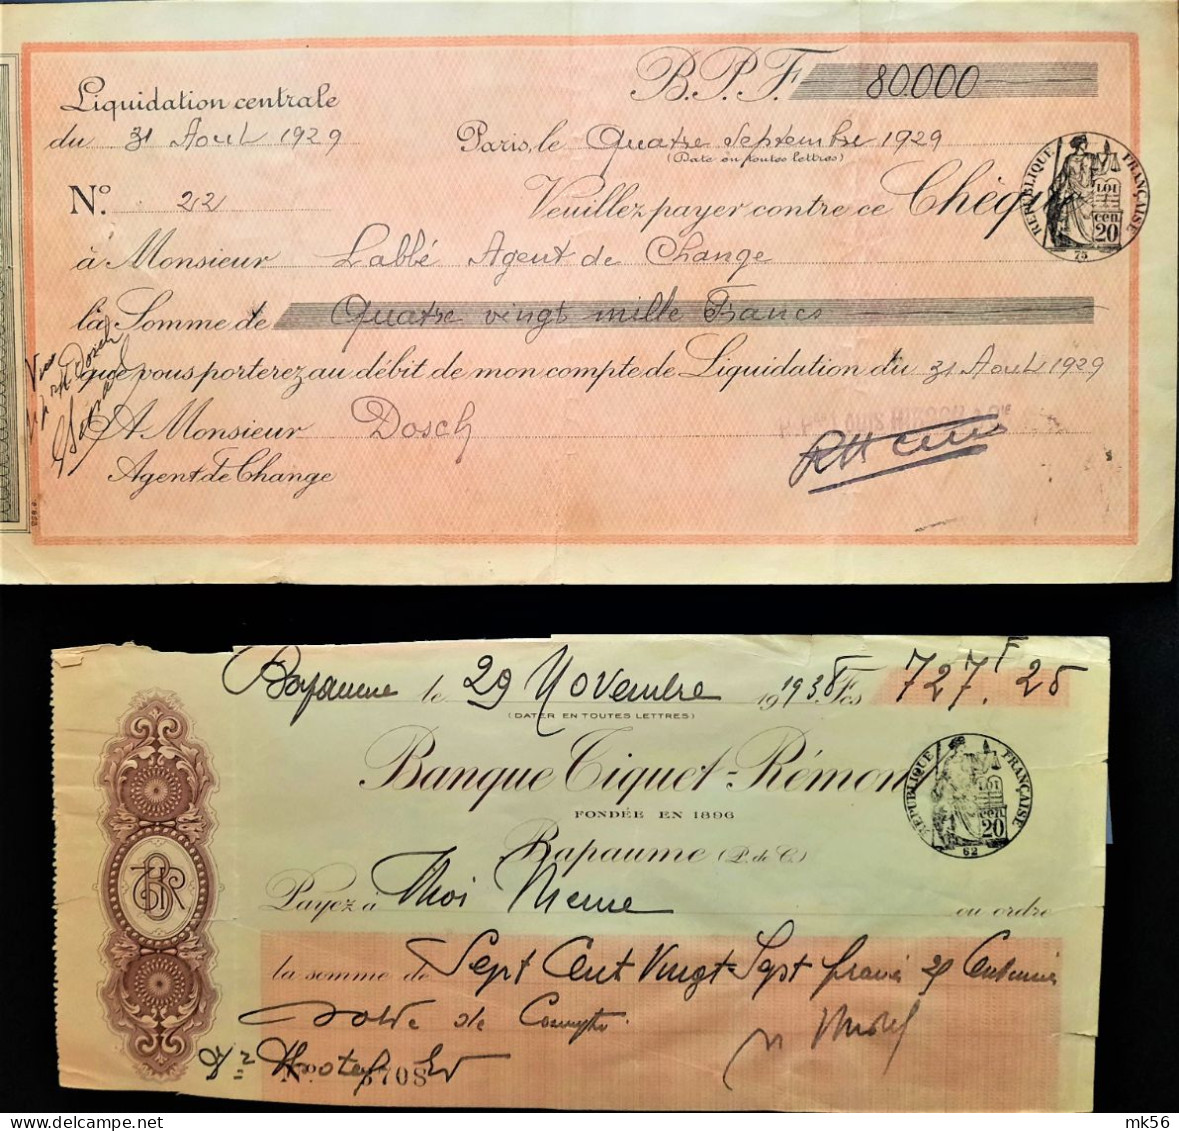 B.P.F. 80.000
Liquidation centrale
du 31 Aout 1929
Paris, le Quatre Septembre 1929
(Date en toutes lettres)
N° 22
Veuillez payer contre ce Chèque
RÉPUBLIQUE FRANÇAISE
LOI
cen. 20
75
à Monsieur Labbé Agent de Change
la Somme de Quatre vingt mille Francs
que vous porterez au débit de mon compte de Liquidation du 31 Aout 1929
A Monsieur Dosch
Agent de Change
Bapaume le 29 Novembre 1938 Fcs 727F.25
(DATER EN TOUTES LETTRES)
Banque Tiquet-Rémond
FONDÉE EN 1896
Bapaume (P. de C.)
RÉPUBLIQUE FRANÇAISE
LOI
cen. 20
62
BTR
Payez à Moi Meme ou ordre
la somme de Sept Cent Vingt Sept francs 25 Centimes
Solde de Compte
N° 3708
mk56